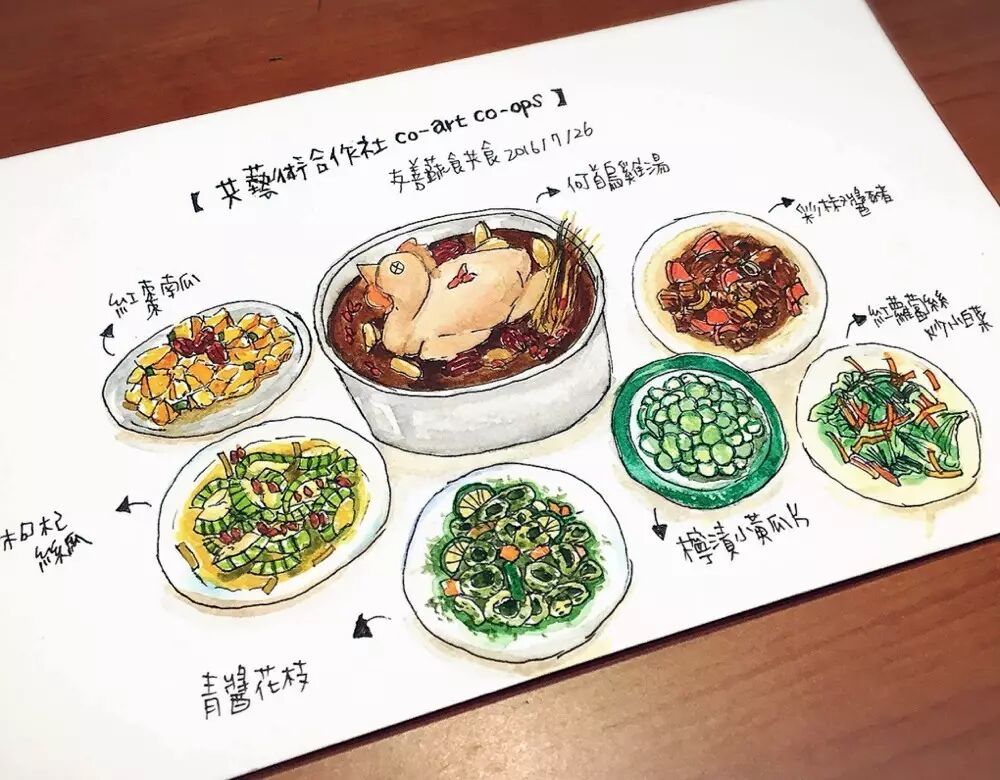 【共藝術合作社 co-art co-ops】
友善蔬食共食 2016/7/26
何首烏雞湯
彩椒醬豬
紅棗南瓜
紅蘿蔔絲
炒小白菜
枸杞
絲瓜
檸漬小黃瓜片
青醬花枝